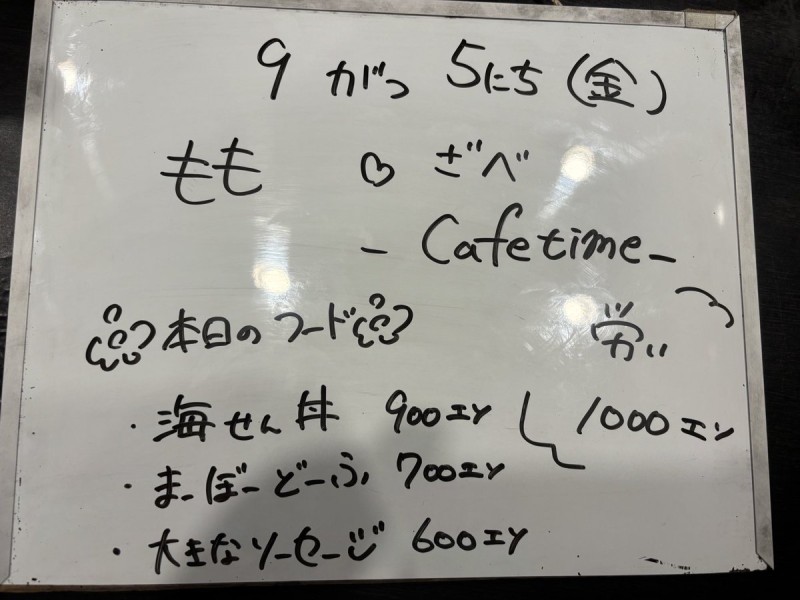 9 がつ 5にち (金)
もも ♡ ざべ
- Cafetime -
本日のフード
・海せん丼 900エン
1000エン
・まーぼーどーふ 700エン
・大きなソーセージ 600エン